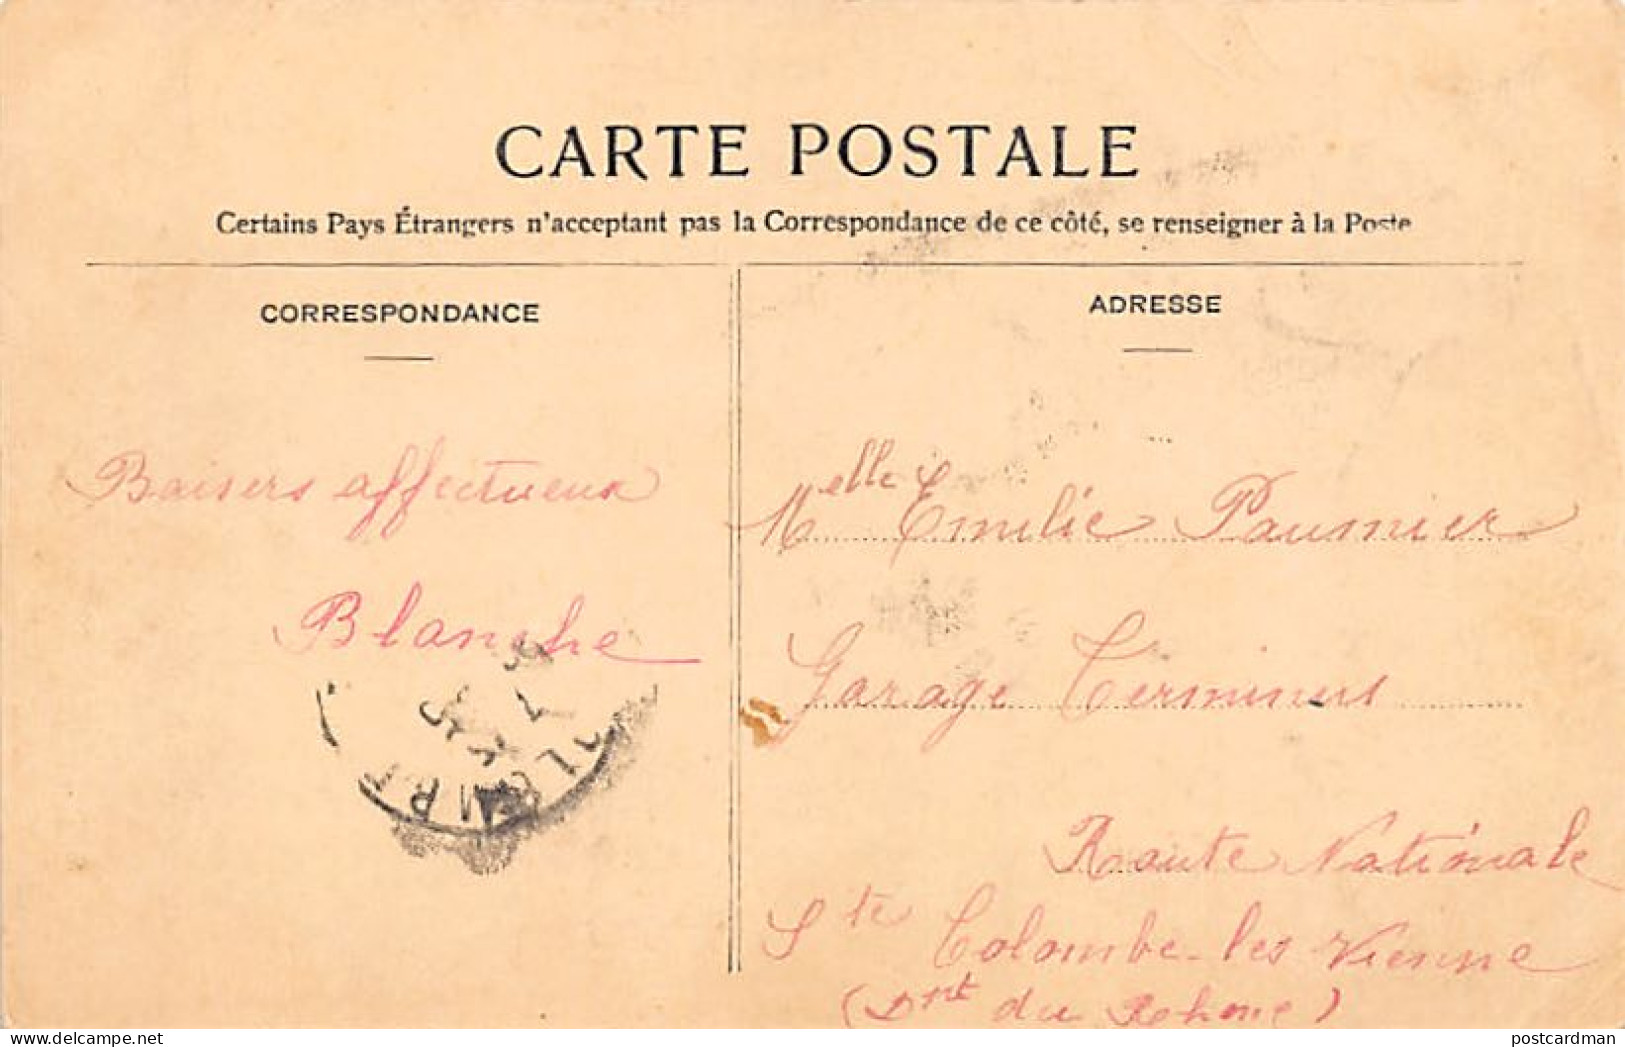 CARTE POSTALE
Certains Pays Étrangers n'acceptant pas la Correspondance de ce côté, se renseigner à la Poste
CORRESPONDANCE
ADRESSE
Baisers affectueux
Blanche
Melle Emilie Paumier
Garage
Route Nationale
Ste Colombe-les-Vienne
(Dmt du Rhone)
postcardman